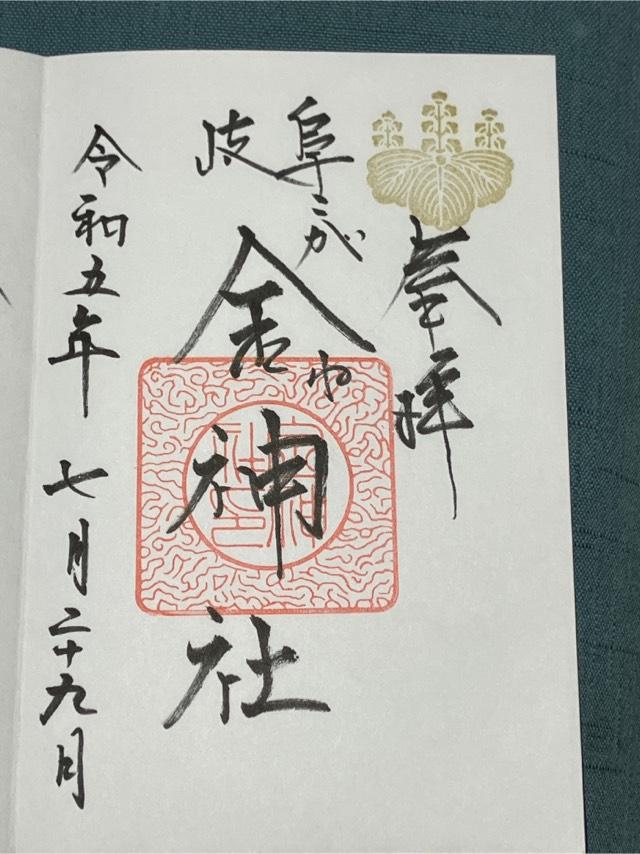 奉拝
岐阜
こがね
金神社
令和五年七月二十九月